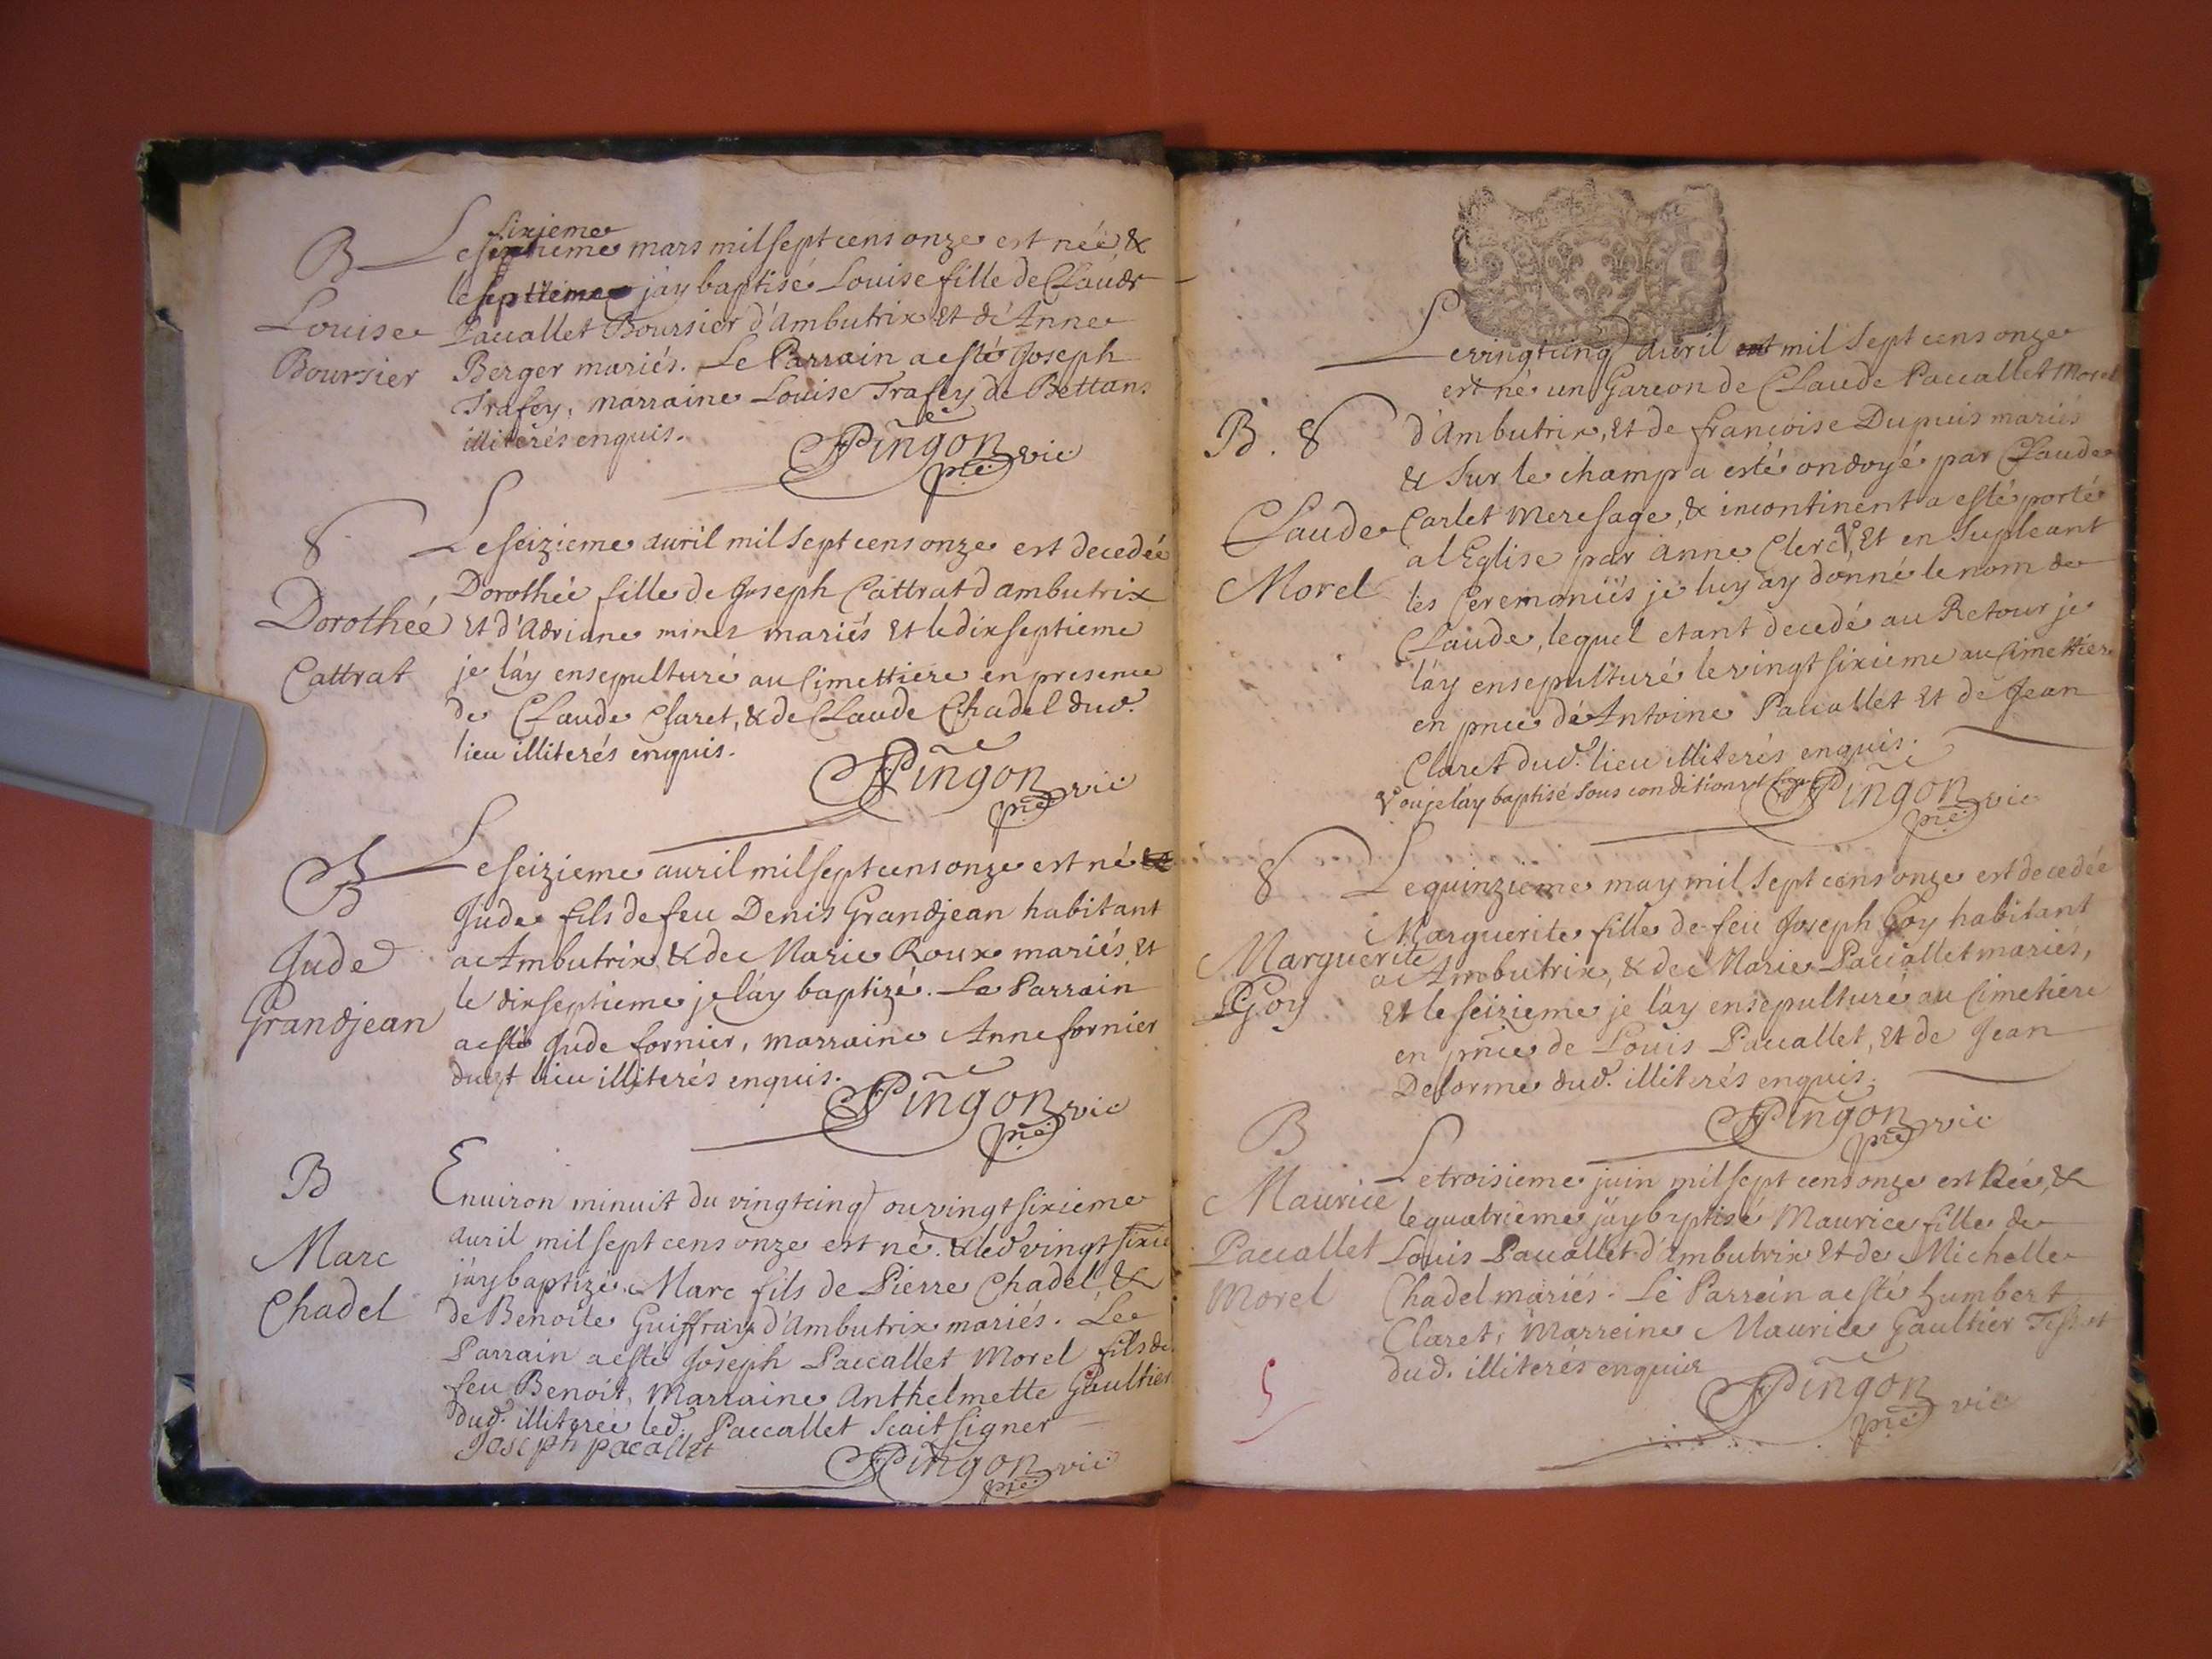 B
Louise
Boursier
sixieme
Le mars mil sept cens onze est née &
le septieme j'ay baptisé Louise fille de Claude
Paccallet Boursier d'Ambutrix Et de Anne
Berger mariés. Le Parrain a esté Joseph
Trafey, marraine Louise Trafey de Bettans
illiterés enquis.
Pingon
pre vic
S
Dorothée
Cattrat
Le seizieme auril mil sept cens onze est decedée
Dorothée fille de Joseph Cattrat d'ambutrix
Et d'Adriane minet mariés Et le dixseptieme
je l'ay ensepulturé au Cimettiere en presence
de Claude Claret, & de Claude Chadel dud.
lieu illiterés enquis.
Pingon
pre vic
B
Jude
Grandjean
Le seizieme auril mil sept cens onze est né
Jude fils de feu Denis Grandjean habitant
a Ambutrix & de Marie Roux mariés, Et
le dixseptieme je l'ay baptizé. Le Parrain
a esté Jude fornier, marraine Anne fornier
dudt lieu illiterés enquis.
Pingon
pre vic
B
Marc
Chadel
Enuiron minuit du vingtcinq ou vingt sixieme
auril mil sept cens onze est né. & led vingt sixie
j'ay baptizé Marc fils de Pierre Chadel, &
de Benoite Guiffray d'Ambutrix mariés. Le
Parrain a esté Joseph Paccallet Morel fils de
feu Benoit, Marraine Anthelmette Gaultier
dud. illiterée led. Paccallet Scait signer
Joseph pacallet
Pingon
pre vic
B. S
Claude
Morel
Le vingtcinq auril mil Sept cens onze
est né un Garcon de Claude Paccallet Morel
d'Ambutrix, Et de francoise Dupuis mariés
& Sur le champ a esté ondoyé par Claude
Carlet mere sage, & incontinent a esté porté
a l'Eglise par anne Clerc, Et en Supleant
les Ceremoniës je luy ay donné le nom de
Claude, lequel etant decedé au Retour je
l'ay ensepulturé le vingt sixieme au Cimettiere
en pnce de Antoine Paccallet Et de Jean
Claret dud. lieu illiterés enquis.
ou je l'ay baptisé sous condition
Pingon
pre vic
S
Marguerite
Goy
Le quinzieme may mil Sept cens onze est decedée
Marguerite fille de feu Joseph Goy habitant
a Ambutrix, & de Marie Paccallet mariés,
Et le seizieme je l'ay ensepulturé au Cimetiere
en pnce de Louis Paccallet, Et de Jean
Delorme dud. illiterés enquis.
Pingon
pre vic
B
Maurice
Paccallet
Morel
Le troisieme juin mil sept cens onze est Née, &
le quatrieme j'ay baptisé Maurice fille de
Louis Paccallet d'Ambutrix Et de Michelle
Chadel mariés. Le Parrein a esté humbert
Claret, Marreine Maurice Gaultier
dud. illiterés enquis
Pingon
pre vic
5